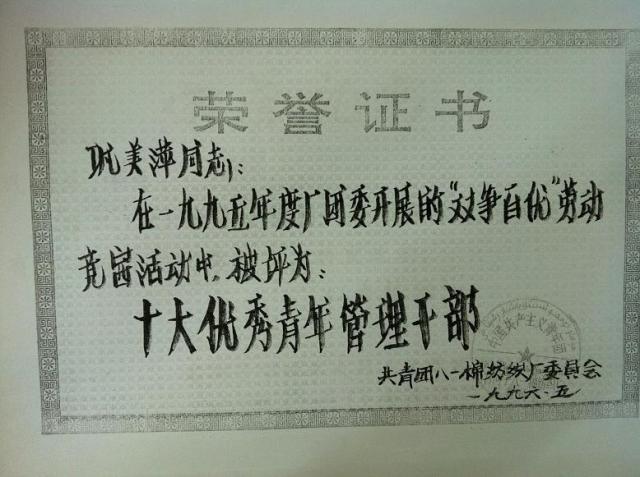 荣誉证书
巩美萍同志:
在一九九五年度厂团委开展的“双争百优”劳动
竞茵活动中,被评为:
十大优秀青年管理干部
共青团八一棉纺织厂委员会
一九九六·五